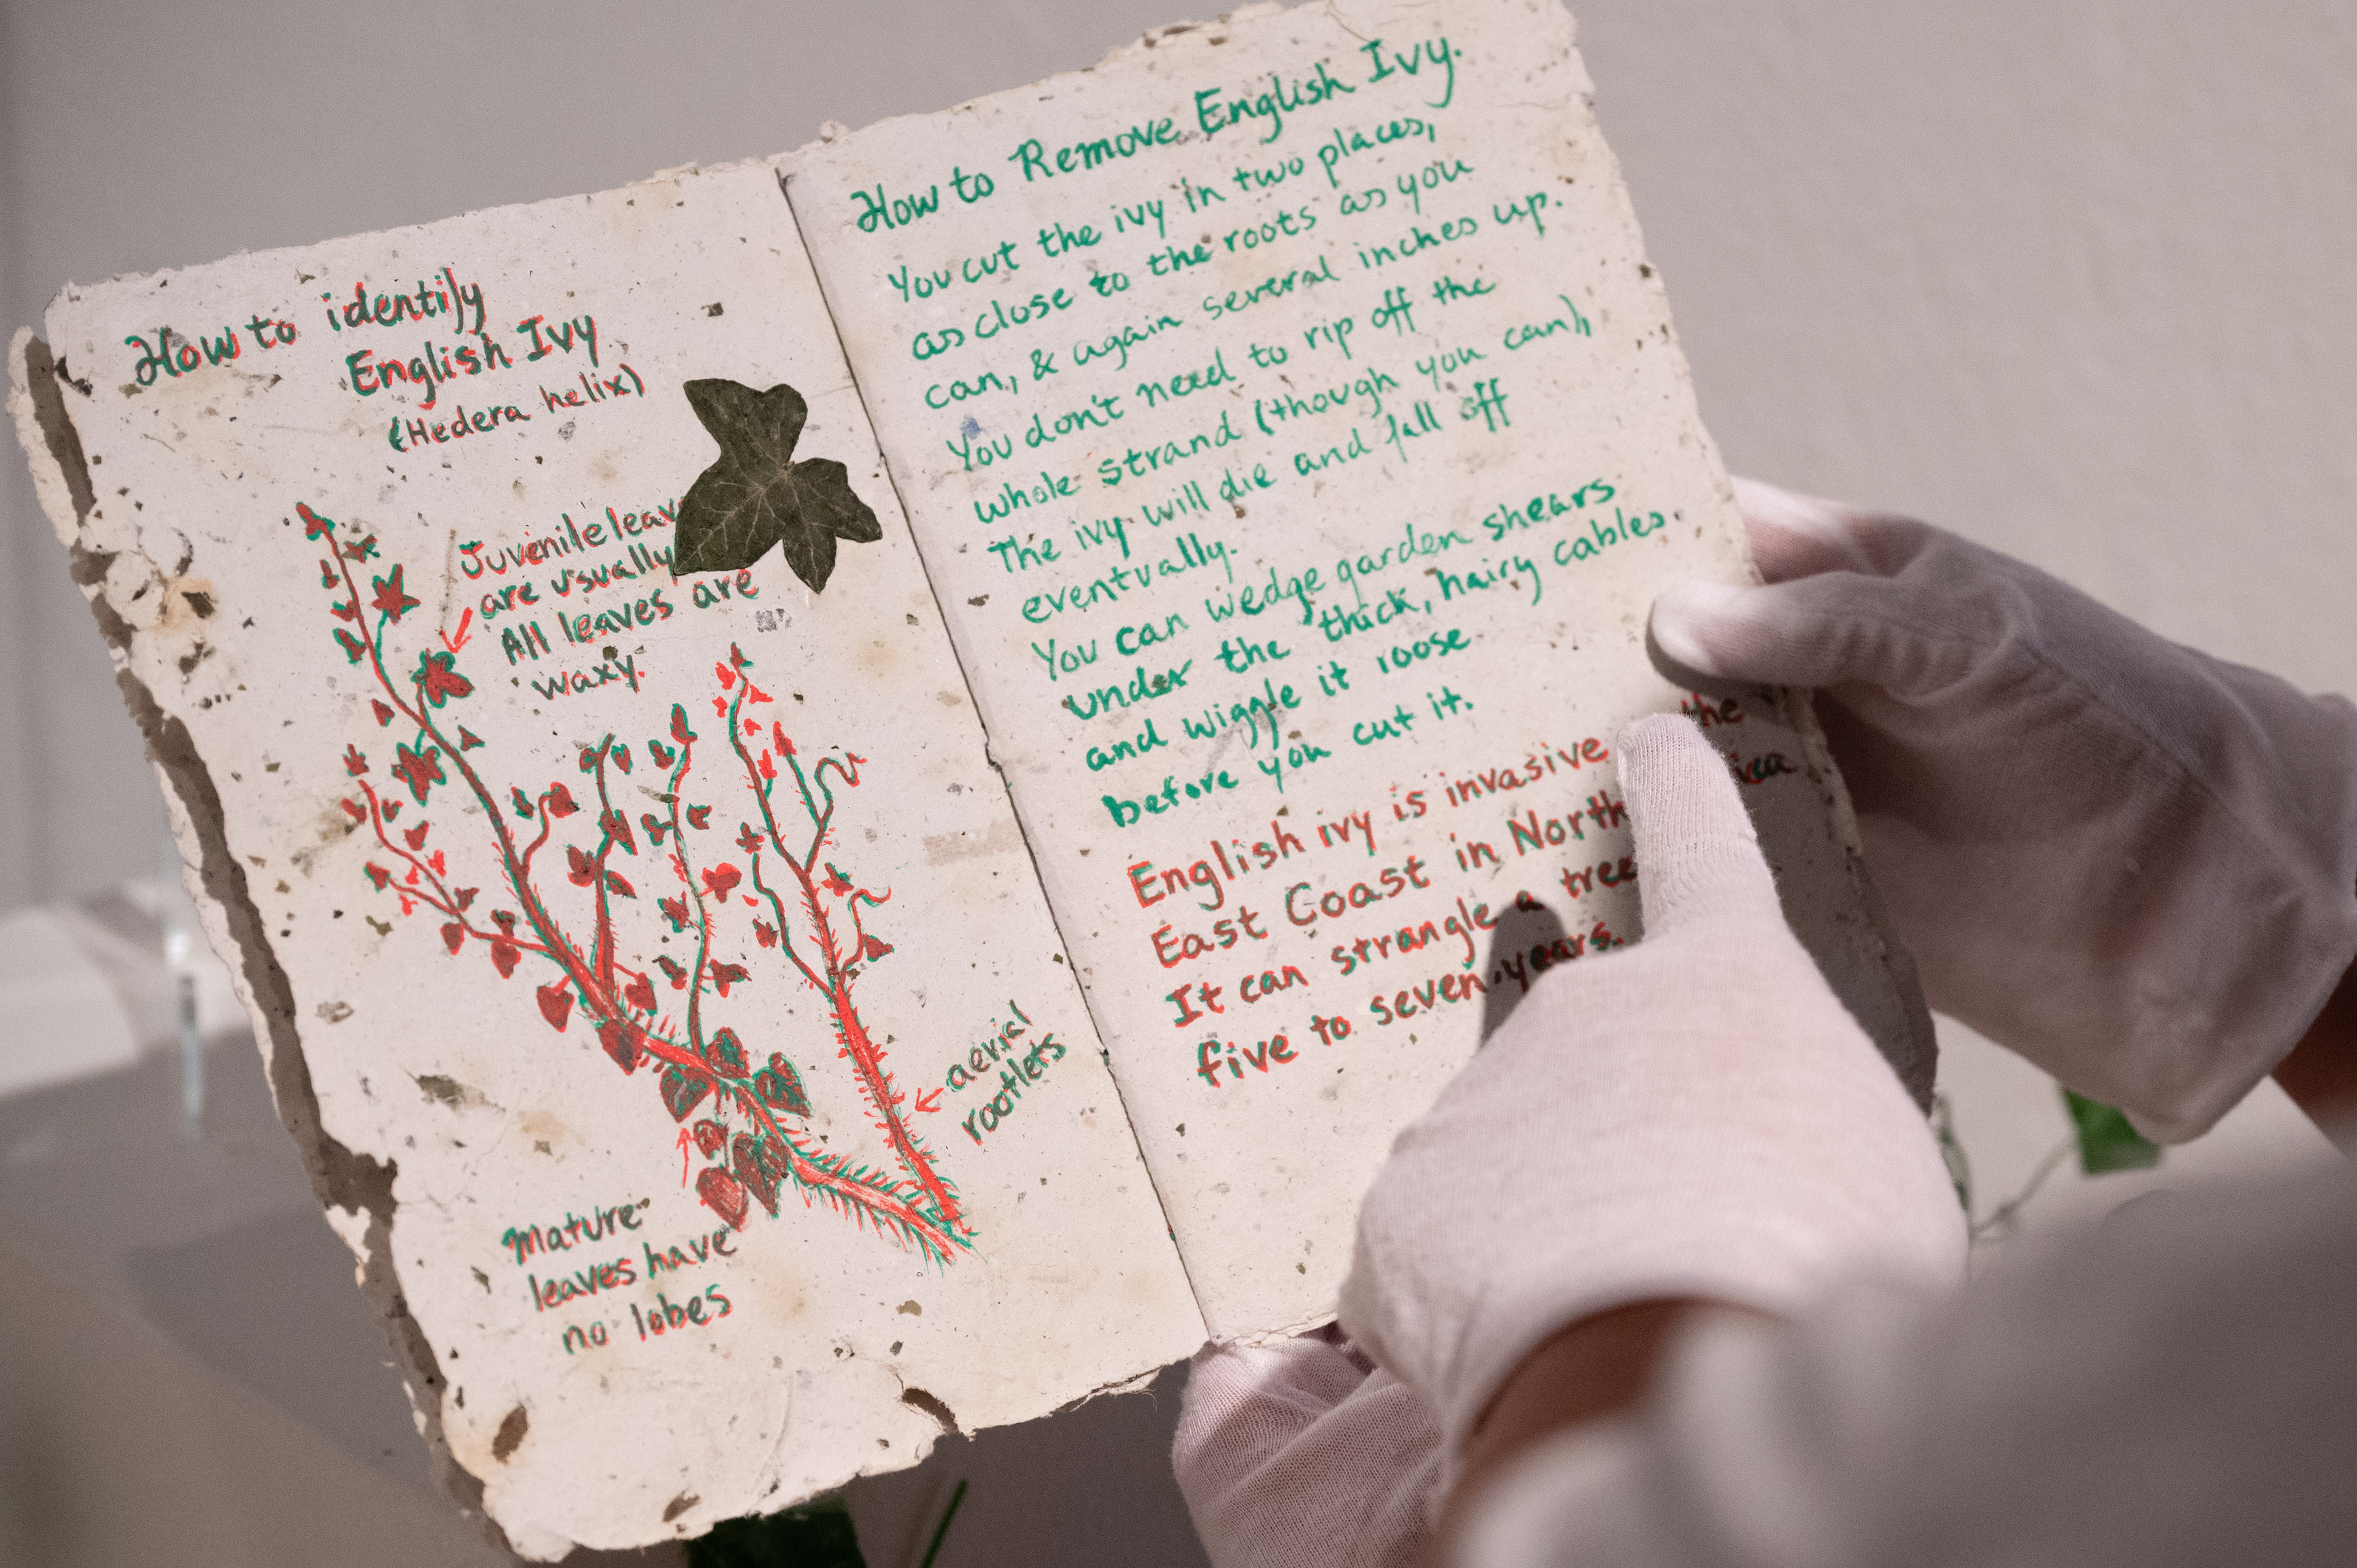 How to identify
English Ivy
(Hedera helix)
Juvenile leav
are usually
All leaves are
waxy.
aerial
rootlets
Mature
leaves have
no lobes
How to Remove English Ivy.
You cut the ivy in two places,
as close to the roots as you
can, & again several inches up.
You don't need to rip off the
whole strand (though you can),
The ivy will die and fall off
eventually.
You can wedge garden shears
under the thick, hairy cables.
and wiggle it loose
before you cut it.
English ivy is invasive the
East Coast in North
It can strangle a tree
five to seven years.